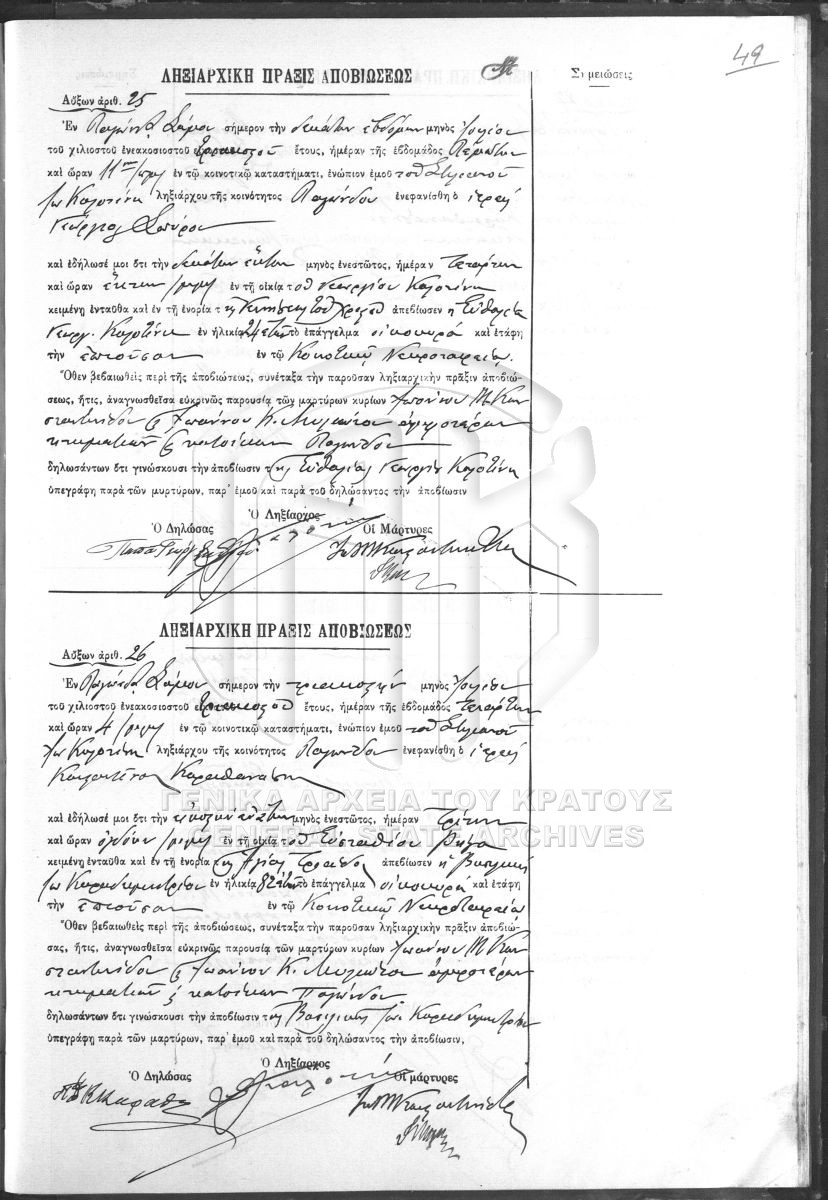 49
ΛΗΞΙΑΡΧΙΚΗ ΠΡΑΞΙΣ ΑΠΟΒΙΩΣΕΩΣ
Σημειώσεις
Αὔξων ἀριθ. 25
Ἐν Παγώνδᾳ Σάμου σήμερον τὴν δεκάτην ἑβδόμην μηνὸς Ἰουλίου
τοῦ χιλιοστοῦ ἐνεακοσιοστοῦ ἔτους, ἡμέραν τῆς ἑβδομάδος Πέμπτην
καὶ ὥραν 11 ἐν τῷ κοινοτικῷ καταστήματι, ἐνώπιον ἐμοῦ τοῦ Στυλιανοῦ
Ἰω Καλοτίνη ληξιάρχου τῆς κοινότητος Παγώνδου ἐνεφανίσθη ὁ ἱερεὺς
Γεώργιος Σπύρου
καὶ ἐδήλωσέ μοι ὅτι τὴν δεκάτην ἕκτην μηνὸς ἐνεστῶτος, ἡμέραν Τετάρτην
καὶ ὥραν ἕκτην ἐν τῇ οἰκίᾳ τοῦ Γεωργίου Καλοτίνη
κειμένῃ ἐνταῦθα καὶ ἐν τῇ ἐνορίᾳ τῆς Γεννήσεως τοῦ Χριστοῦ ἀπεβίωσεν ἡ Εὐθαλία
Γεωργ. Καλοτίνη ἐν ἡλικίᾳ 24 ἐτῶν τὸ ἐπάγγελμα οἰκοκυρὰ καὶ ἐτάφη
τὴν ἐπιοῦσαν ἐν τῷ Κοινοτικῷ Νεκροταφείῳ.
Ὅθεν βεβαιωθεὶς περὶ τῆς ἀποβιώσεως, συνέταξα τὴν παροῦσαν ληξιαρχικὴν πρᾶξιν ἀποβιώ-
σεως, ἥτις, ἀναγνωσθεῖσα εὐκρινῶς παρουσίᾳ τῶν μαρτύρων κυρίων Ἰωάννου Μ. Κων
σταντινίδου & Ἰωάννου Κ. ἀμφοτέρων
κτηματιῶν & κατοίκων Παγώνδου
δηλωσάντων ὅτι γινώσκουσι τὴν ἀποβίωσιν τῆς Εὐθαλίας Γεωργίου Καλοτίνη
ὑπεγράφη παρὰ τῶν μυρτύρων, παρ' ἐμοῦ καὶ παρὰ τοῦ δηλώσαντος τὴν ἀποβίωσιν
Ὁ Ληξίαρχος
Ὁ Δηλώσας Οἱ Μάρτυρες
ΛΗΞΙΑΡΧΙΚΗ ΠΡΑΞΙΣ ΑΠΟΒΙΩΣΕΩΣ
Αὔξων ἀριθ. 26
Ἐν Παγώνδᾳ Σάμου σήμερον τὴν τριακοστὴν μηνὸς Ἰουλίου
τοῦ χιλιοστοῦ ἐνεακοσιοστοῦ ἔτους, ἡμέραν τῆς ἑβδομάδος Τετάρτην
καὶ ὥραν 4 ἐν τῷ κοινοτικῷ καταστήματι, ἐνώπιον ἐμοῦ τοῦ Στυλιανοῦ
Ἰω Καλοτίνη ληξιάρχου τῆς κοινότητος Παγώνδου ἐνεφανίσθη ὁ ἱερεὺς
Κωνσταντῖνος Καραθανάσης
ΓΕΝΙΚΑ ΑΡΧΕΙΑ ΤΟΥ ΚΡΑΤΟΥΣ
GENERAL STATE ARCHIVES
καὶ ἐδήλωσέ μοι ὅτι τὴν εἰκοστὴν ἐνάτην μηνὸς ἐνεστῶτος, ἡμέραν Τρίτην
καὶ ὥραν ὀγδόην ἐν τῇ οἰκίᾳ τοῦ Εὐσταθίου Ρήγα
κειμένῃ ἐνταῦθα καὶ ἐν τῇ ἐνορίᾳ τῆς Ἁγίας Τριάδος ἀπεβίωσεν ἡ Βασιλικὴ
Ἰω Καραδημητρίου ἐν ἡλικίᾳ 82 ἐτῶν τὸ ἐπάγγελμα οἰκοκυρὰ καὶ ἐτάφη
τὴν ἐπιοῦσαν ἐν τῷ Κοινοτικῷ Νεκροταφείῳ
Ὅθεν βεβαιωθεὶς περὶ τῆς ἀποβιώσεως, συνέταξα τὴν παροῦσαν ληξιαρχικὴν πρᾶξιν ἀποβιώ-
σας, ἥτις, ἀναγνωσθεῖσα εὐκρινῶς παρουσίᾳ τῶν μαρτύρων κυρίων Ἰωάννου Μ. Κων
σταντινίδου & Ἰωάννου Κ. ἀμφοτέρων
κτηματιῶν & κατοίκων Παγώνδου
δηλωσάντων ὅτι γινώσκουσι τὴν ἀποβίωσιν τῆς Βασιλικῆς Ἰω. Καραδημητρίου
ὑπεγράφη παρὰ τῶν μαρτύρων, παρ' ἐμοῦ καὶ παρὰ τοῦ δηλώσαντος τὴν ἀποβίωσιν,
Ὁ Ληξίαρχος
Ὁ Δηλώσας Οἱ μάρτυρες